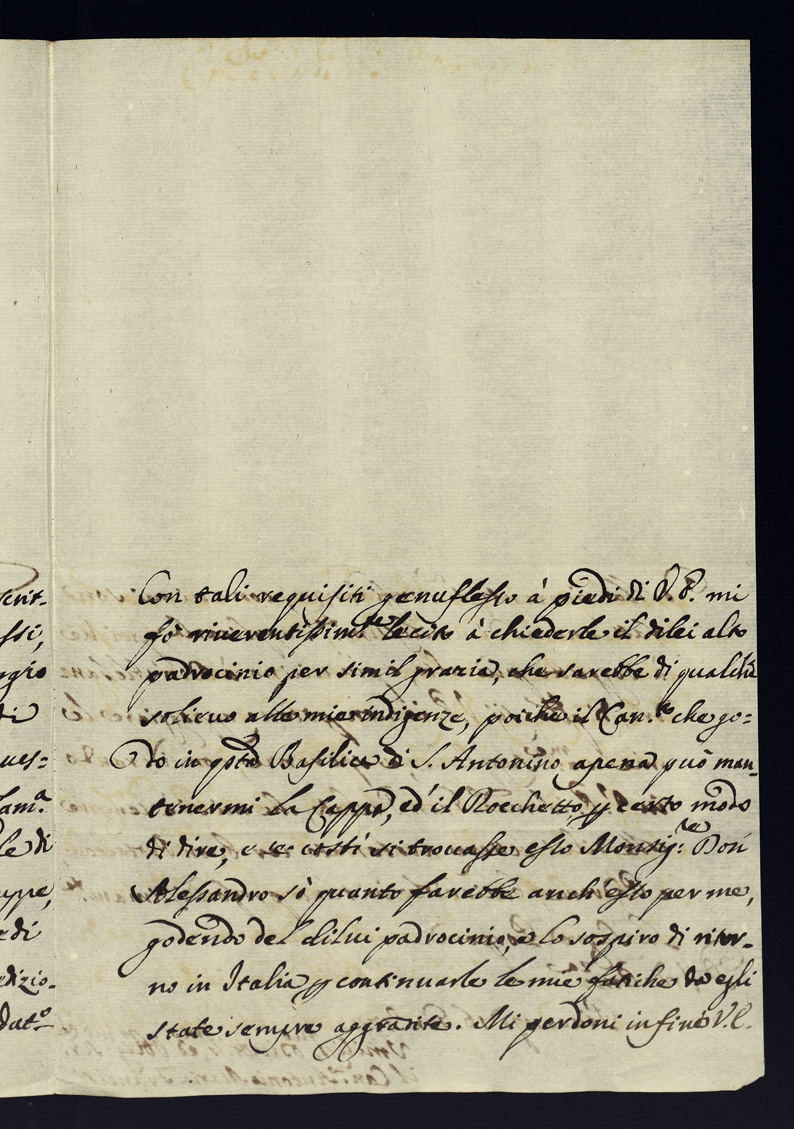 Con tali requisiti genuflesso à piedi di V. E. mi
fò riverentissim.te lecito à chiederle il dilei alto
padrocinio per simil grazia, che sarebbe di qualche
solievo alle mie indigenze, poiche il Can.to che go=
do in qsta Basilica di S. Antonino apena può man=
tenermi la Cappa, ed' il Rocchetto, p certo modo
di dire, e se costì si trovasse esso Monsig.re Don
Alessandro sò quanto farebbe anch'esso per me,
godendo del dilui padrocinio, e lo sospiro di ritor=
no in Italia p continuarle le mie fatiche da egli
state sempre aggradite. Mi perdoni in fine V. E.
scrit=
ssi,
rgio
ti
ues=
am.a
le di
uppe,
edi
dizio=
dato